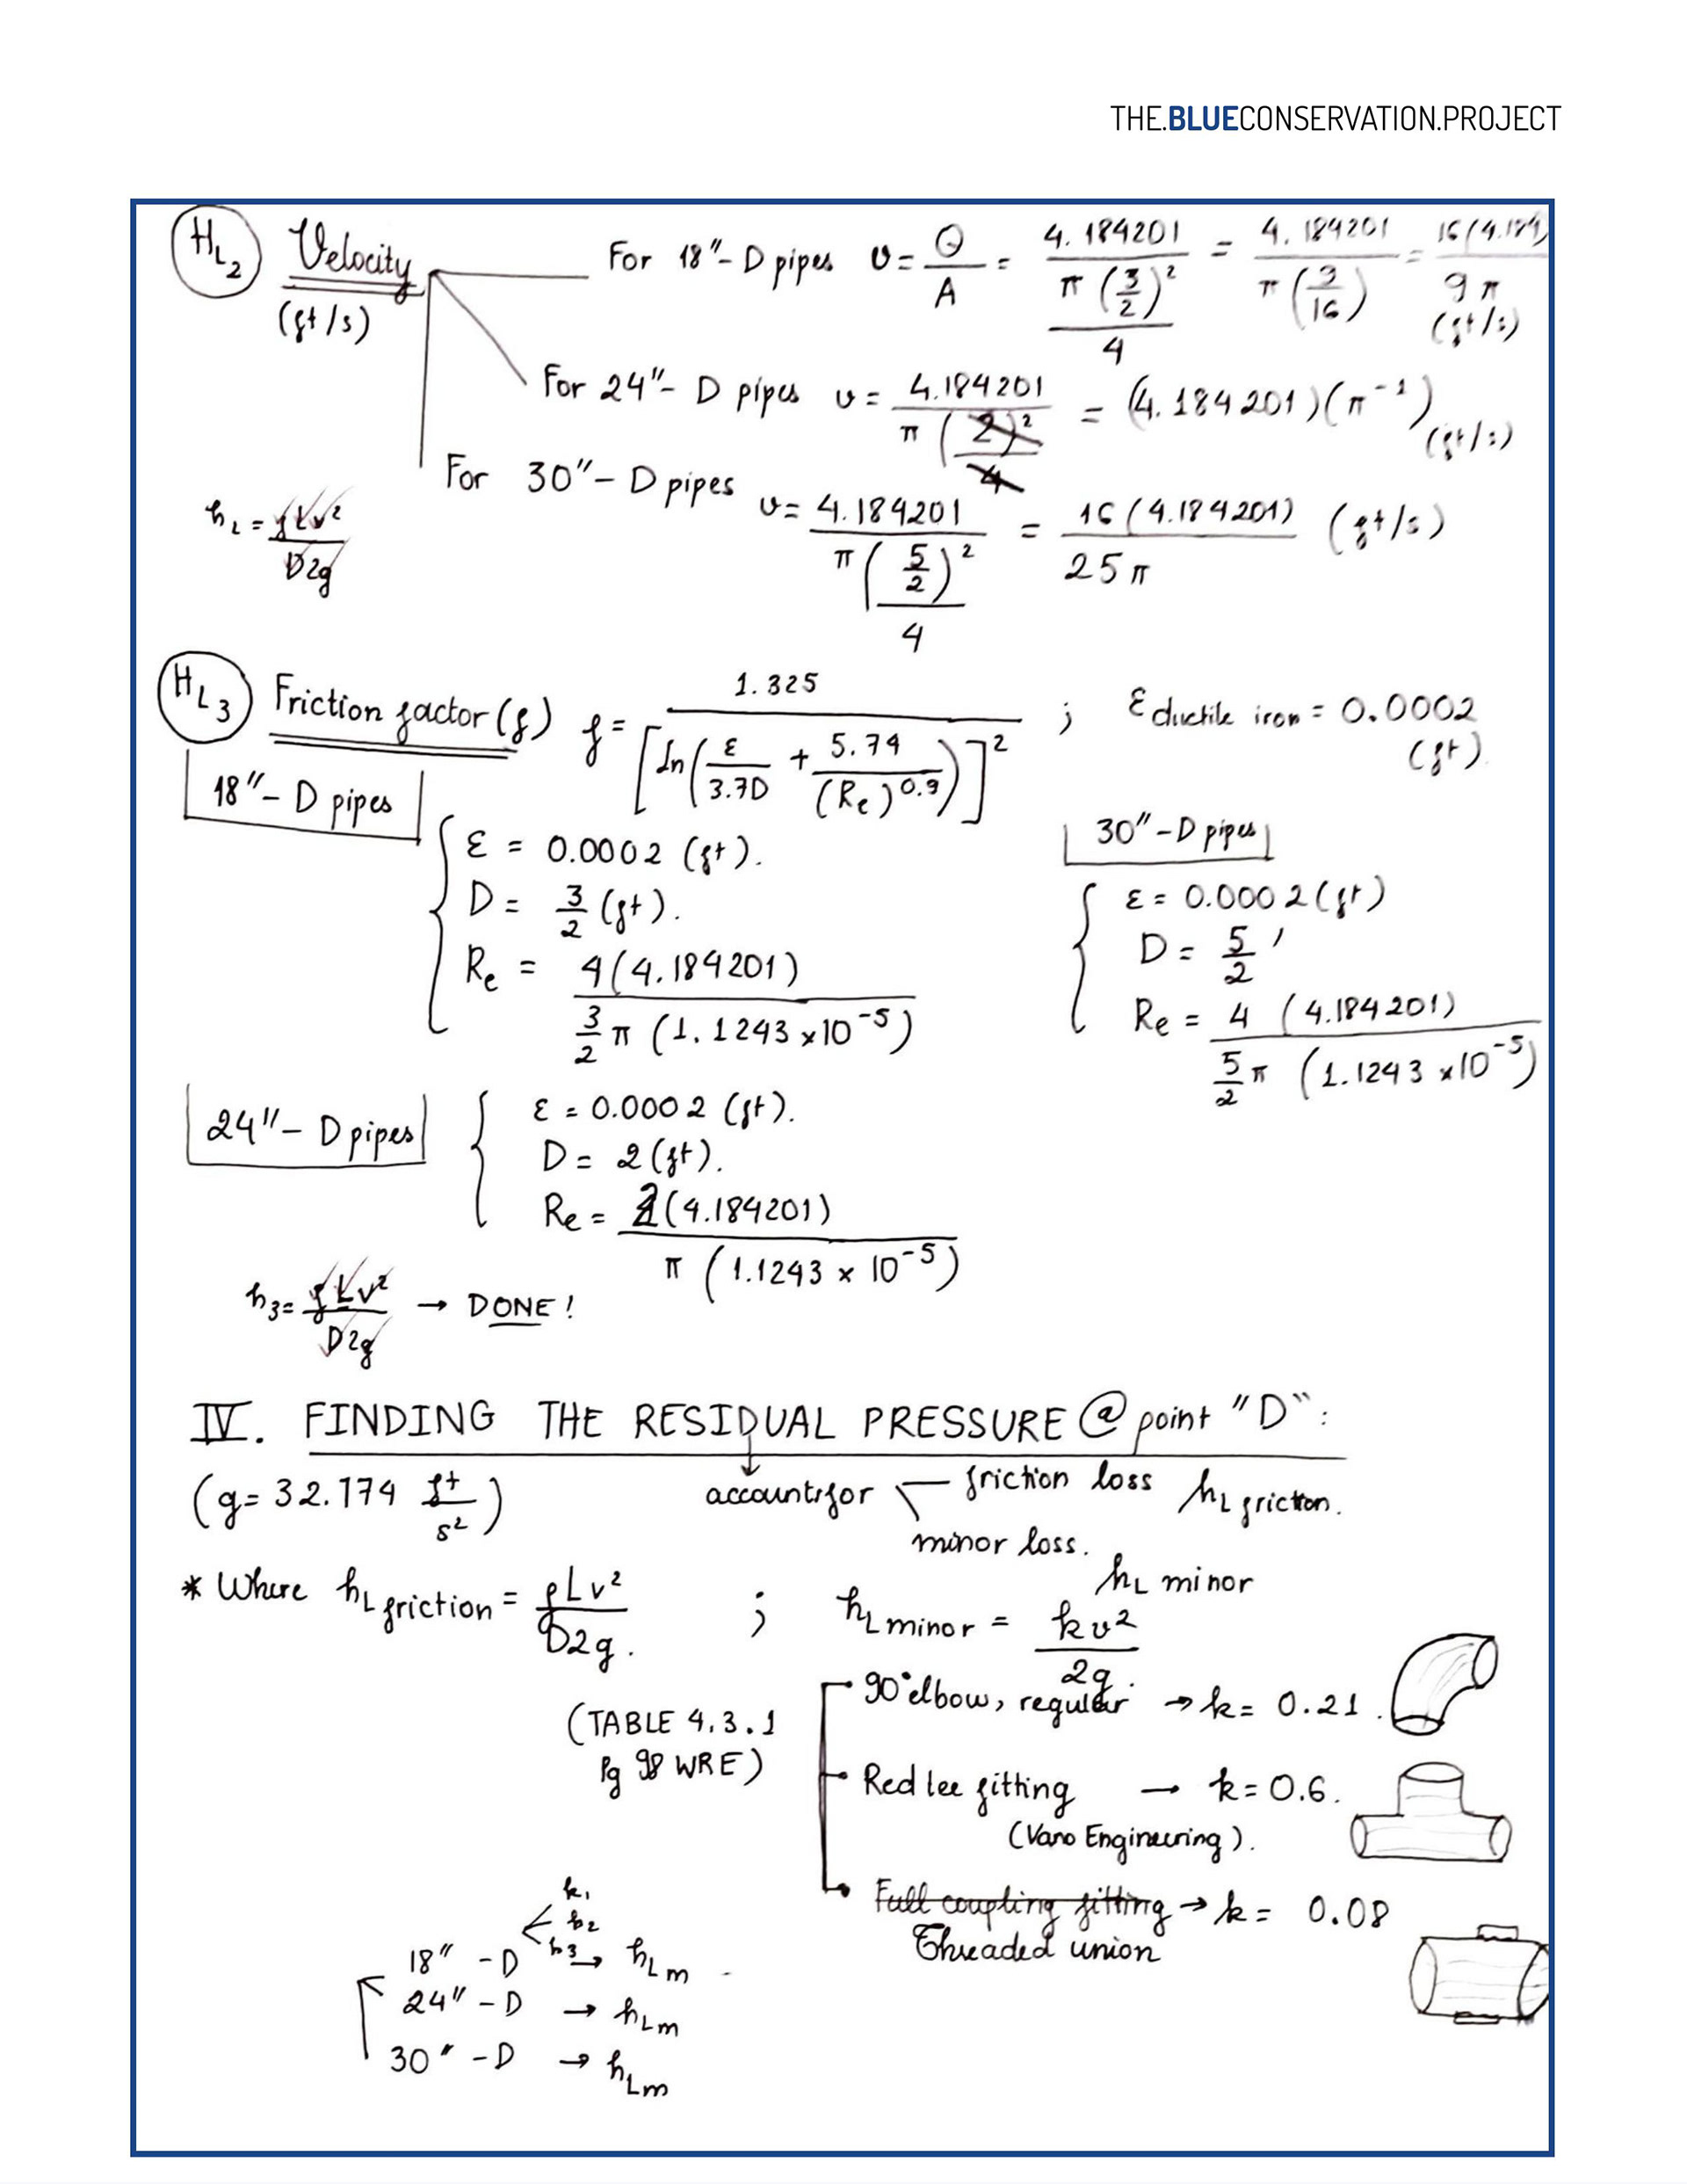 THE.BLUECONSERVATION.PROJECT
HL2 Velocity (ft/s)
For 18"- D pipes v = Q/A = 4.184201 / (π (3/2)² / 4) = 4.184201 / (π (9/16)) = 16(4.184) / 9π (ft/s)
For 24"- D pipes v = 4.184201 / (π (2)²/4) = (4.184201)(π⁻¹) (ft/s)
For 30"- D pipes v = 4.184201 / (π (5/2)² / 4) = 16(4.184201) / 25π (ft/s)
hL = fLv² / D2g
HL3 Friction factor (f) f = 1.325 / [ln(ε/3.7D + 5.74/(Re)^0.9)]² ; ε ductile iron = 0.0002 (ft).
18"- D pipes
ε = 0.0002 (ft).
D = 3/2 (ft).
Re = 4(4.184201) / (3/2 π (1.1243 x10⁻⁵))
30"-D pipes
ε = 0.0002 (ft)
D = 5/2 '
Re = 4 (4.184201) / (5/2 π (1.1243 x10⁻⁵))
24"- D pipes
ε = 0.0002 (ft).
D = 2 (ft).
Re = 2(4.184201) / (π (1.1243 x 10⁻⁵))
h3 = fLv² / D2g → DONE!
IV. FINDING THE RESIDUAL PRESSURE @ point "D":
(g = 32.174 ft/s²)
accounts for
friction loss hL friction.
minor loss. hL minor
* Where hL friction = fLv² / D2g. ; hL minor = kv² / 2g.
(TABLE 4.3.1
Pg 98 WRE)
90° elbow, regular → k = 0.21.
Red lee fitting → k = 0.6.
(Vano Engineering).
Full coupling fitting → k = 0.08
Threaded union
k1
k2
k3
18" - D → hLm
24" - D → hLm
30" - D → hLm